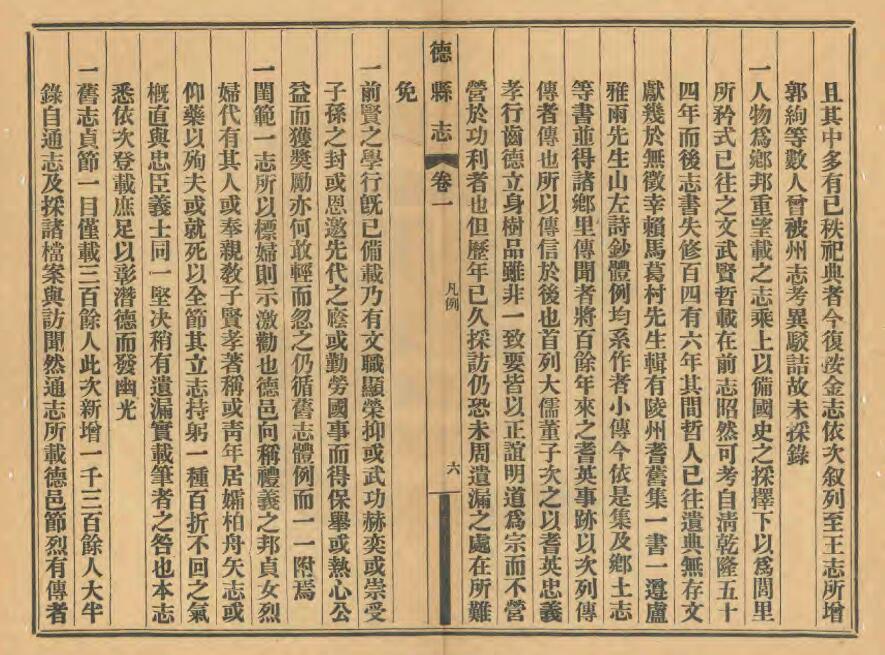 且其中多有已秩祀典者今復按金志依次叙列至王志所增
郭絢等數人曾被州志考異駁詰故未採錄
一人物爲鄉邦重望載之志乘上以備國史之採擇下以爲閭里
所矜式已往之文武賢哲載在前志昭然可考自清乾隆五十
四年而後志書失修百四有六年其間哲人已往遺典無存文
獻幾於無徵幸賴馬葛村先生輯有陵州耆舊集一書一遵盧
雅雨先生山左詩鈔體例均系作者小傳今依是集及鄉土志
等書並得諸鄉里傳聞者將百餘年來之耆英事跡以次列傳
傳者傳也所以傳信於後也首列大儒董子次之以耆英忠義
孝行齒德立身樹品雖非一致要皆以正誼明道爲宗而不營
營於功利者也但歷年已久採訪仍恐未周遺漏之處在所難
德縣志 卷一 凡例 六
免
一前賢之學行既已備載乃有文職顯榮抑或武功赫奕或崇受
子孫之封或恩邀先代之廕或勤勞國事而得保舉或熱心公
益而獲獎勵亦何敢輕而忽之仍循舊志體例而一一附焉
一閨範一志所以標婦則示激勸也德邑向稱禮義之邦貞女烈
婦代有其人或奉親敎子賢孝著稱或靑年居孀柏舟矢志或
仰藥以殉夫或就死以全節其立志持躬一種百折不回之氣
槪直與忠臣義士同一堅决稍有遺漏實載筆者之咎也本志
悉依次登載庶足以彰潛德而發幽光
一舊志貞節一目僅載三百餘人此次新增一千三百餘人大半
錄自通志及採諸檔案與訪聞然通志所載德邑節烈有傳者